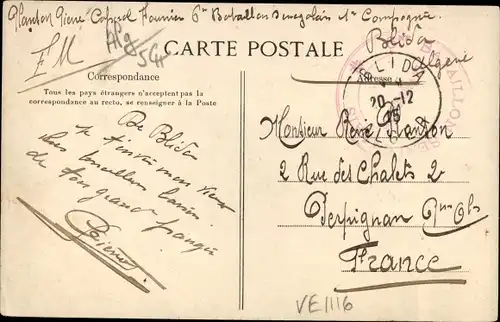 Planton Pierre Caporal Fourrier 6e Bataillon Senegalais 1e Compagnie
Blida
Algérie
FM
Alg
CARTE POSTALE
Correspondance
Adresse
Tous les pays étrangers n'acceptent pas la
correspondance au recto, se renseigner à la Poste
BATAILLON
BLIDA
20-12
15
ALGER
De Blida
je t'envoie mon vieux
les meilleurs baisers
de ton grand frangin
Pierre
Monsieur René Planton
2 Rue des Chalets 2
Perpignan Pnées Oles
France
VE1116